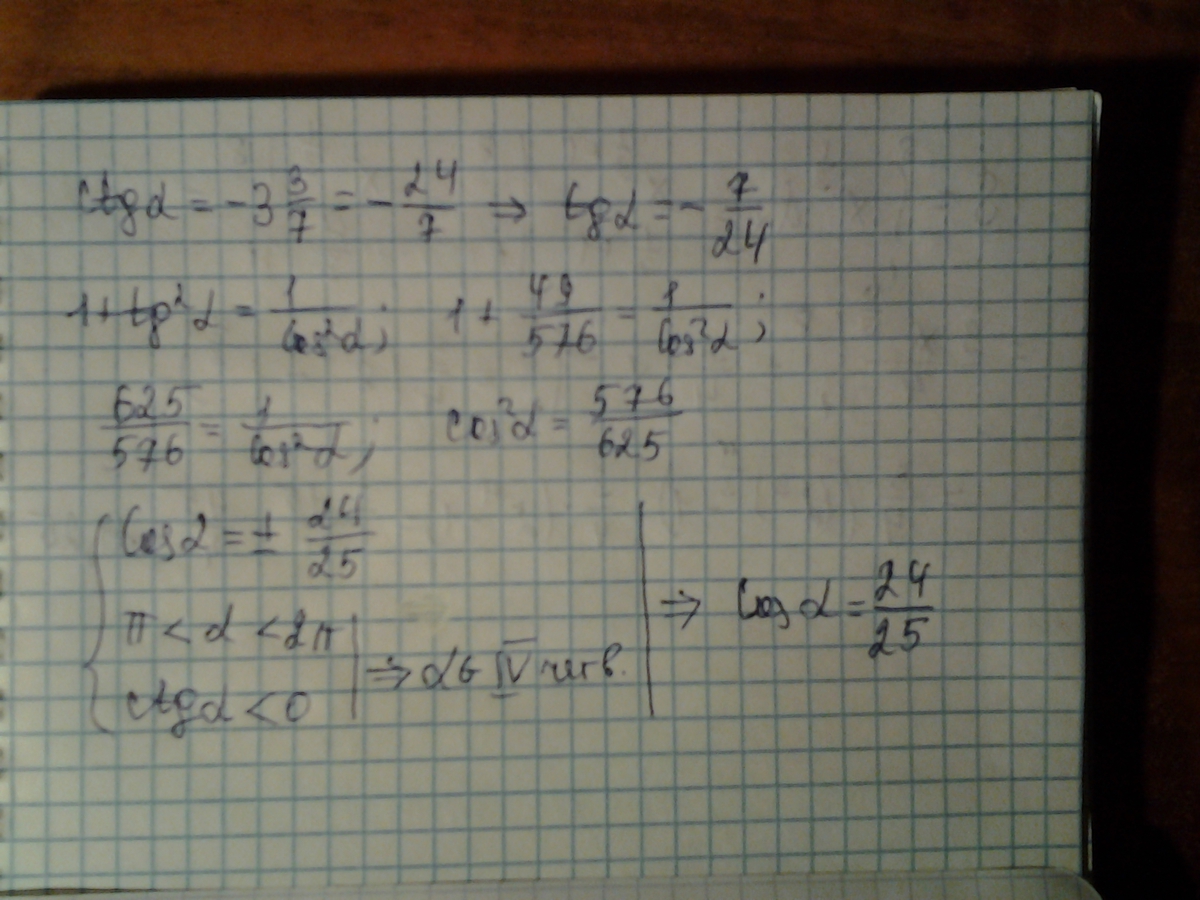 ctg α = -3 3/7 = - 24/7 ⇒ tg α = - 7/24
1 + tg²α = 1/cos²α; 1 + 49/576 = 1/cos²α;
625/576 = 1/cos²α; cos²α = 576/625
{ cos α = ± 24/25
π < α < 2π
ctg α < 0 | ⇒ α ∈ IV четв. | ⇒ cos α = 24/25